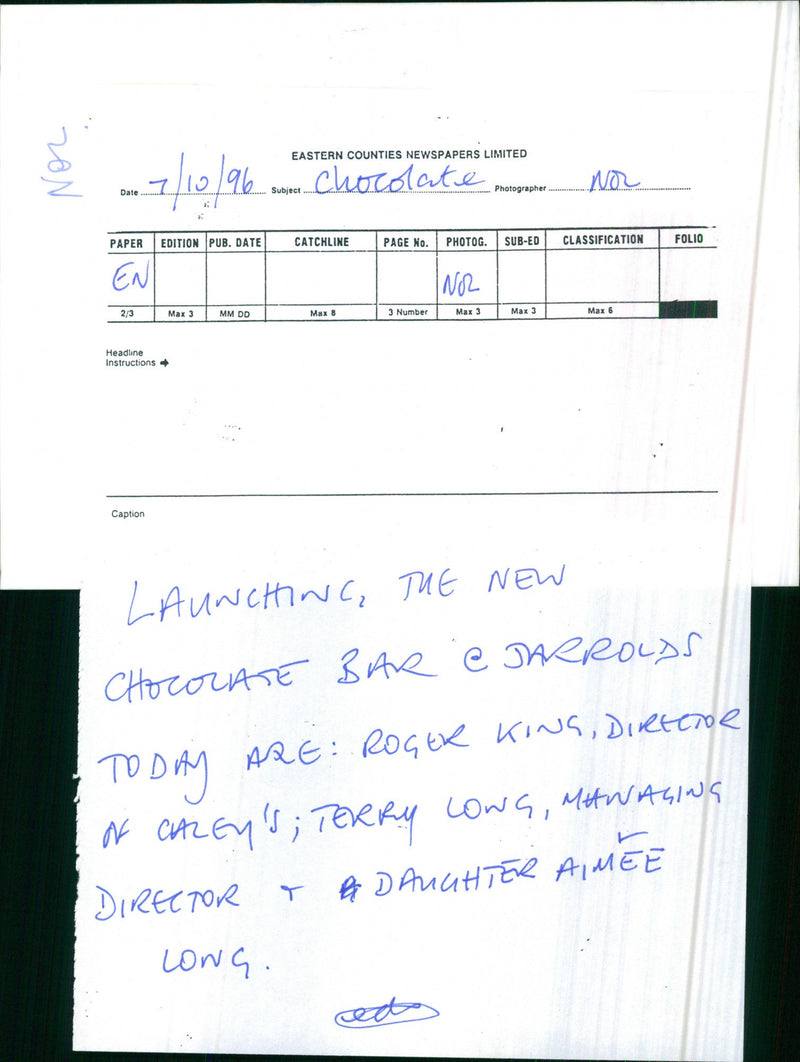 Nor
EASTERN COUNTIES NEWSPAPERS LIMITED
Date 7/10/96 Subject Chocolate Photographer Nor
PAPER EDITION PUB. DATE CATCHLINE PAGE No. PHOTOG. SUB-ED CLASSIFICATION FOLIO
EN Nor
2/3 Max 3 MM DD Max 8 3 Number Max 3 Max 3 Max 6
Headline
Instructions →
Caption
LAUNCHING, THE NEW
CHOCOLATE BAR @ JARROLDS
TODAY ARE: ROGER KING, DIRECTOR
OF CALEY'S; TERRY LONG, MANAGING
DIRECTOR + DAUGHTER AIMÉE
LONG.
eds